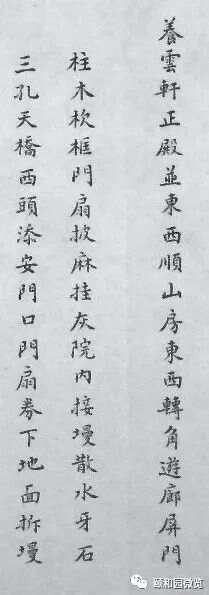 養雲軒正殿並東西順山房東西轉角遊廊屏門
柱木枕框門扇披麻挂灰院內接墁散水牙石
三孔天橋西頭添安門口門扇券下地面拆墁
颐和园微览